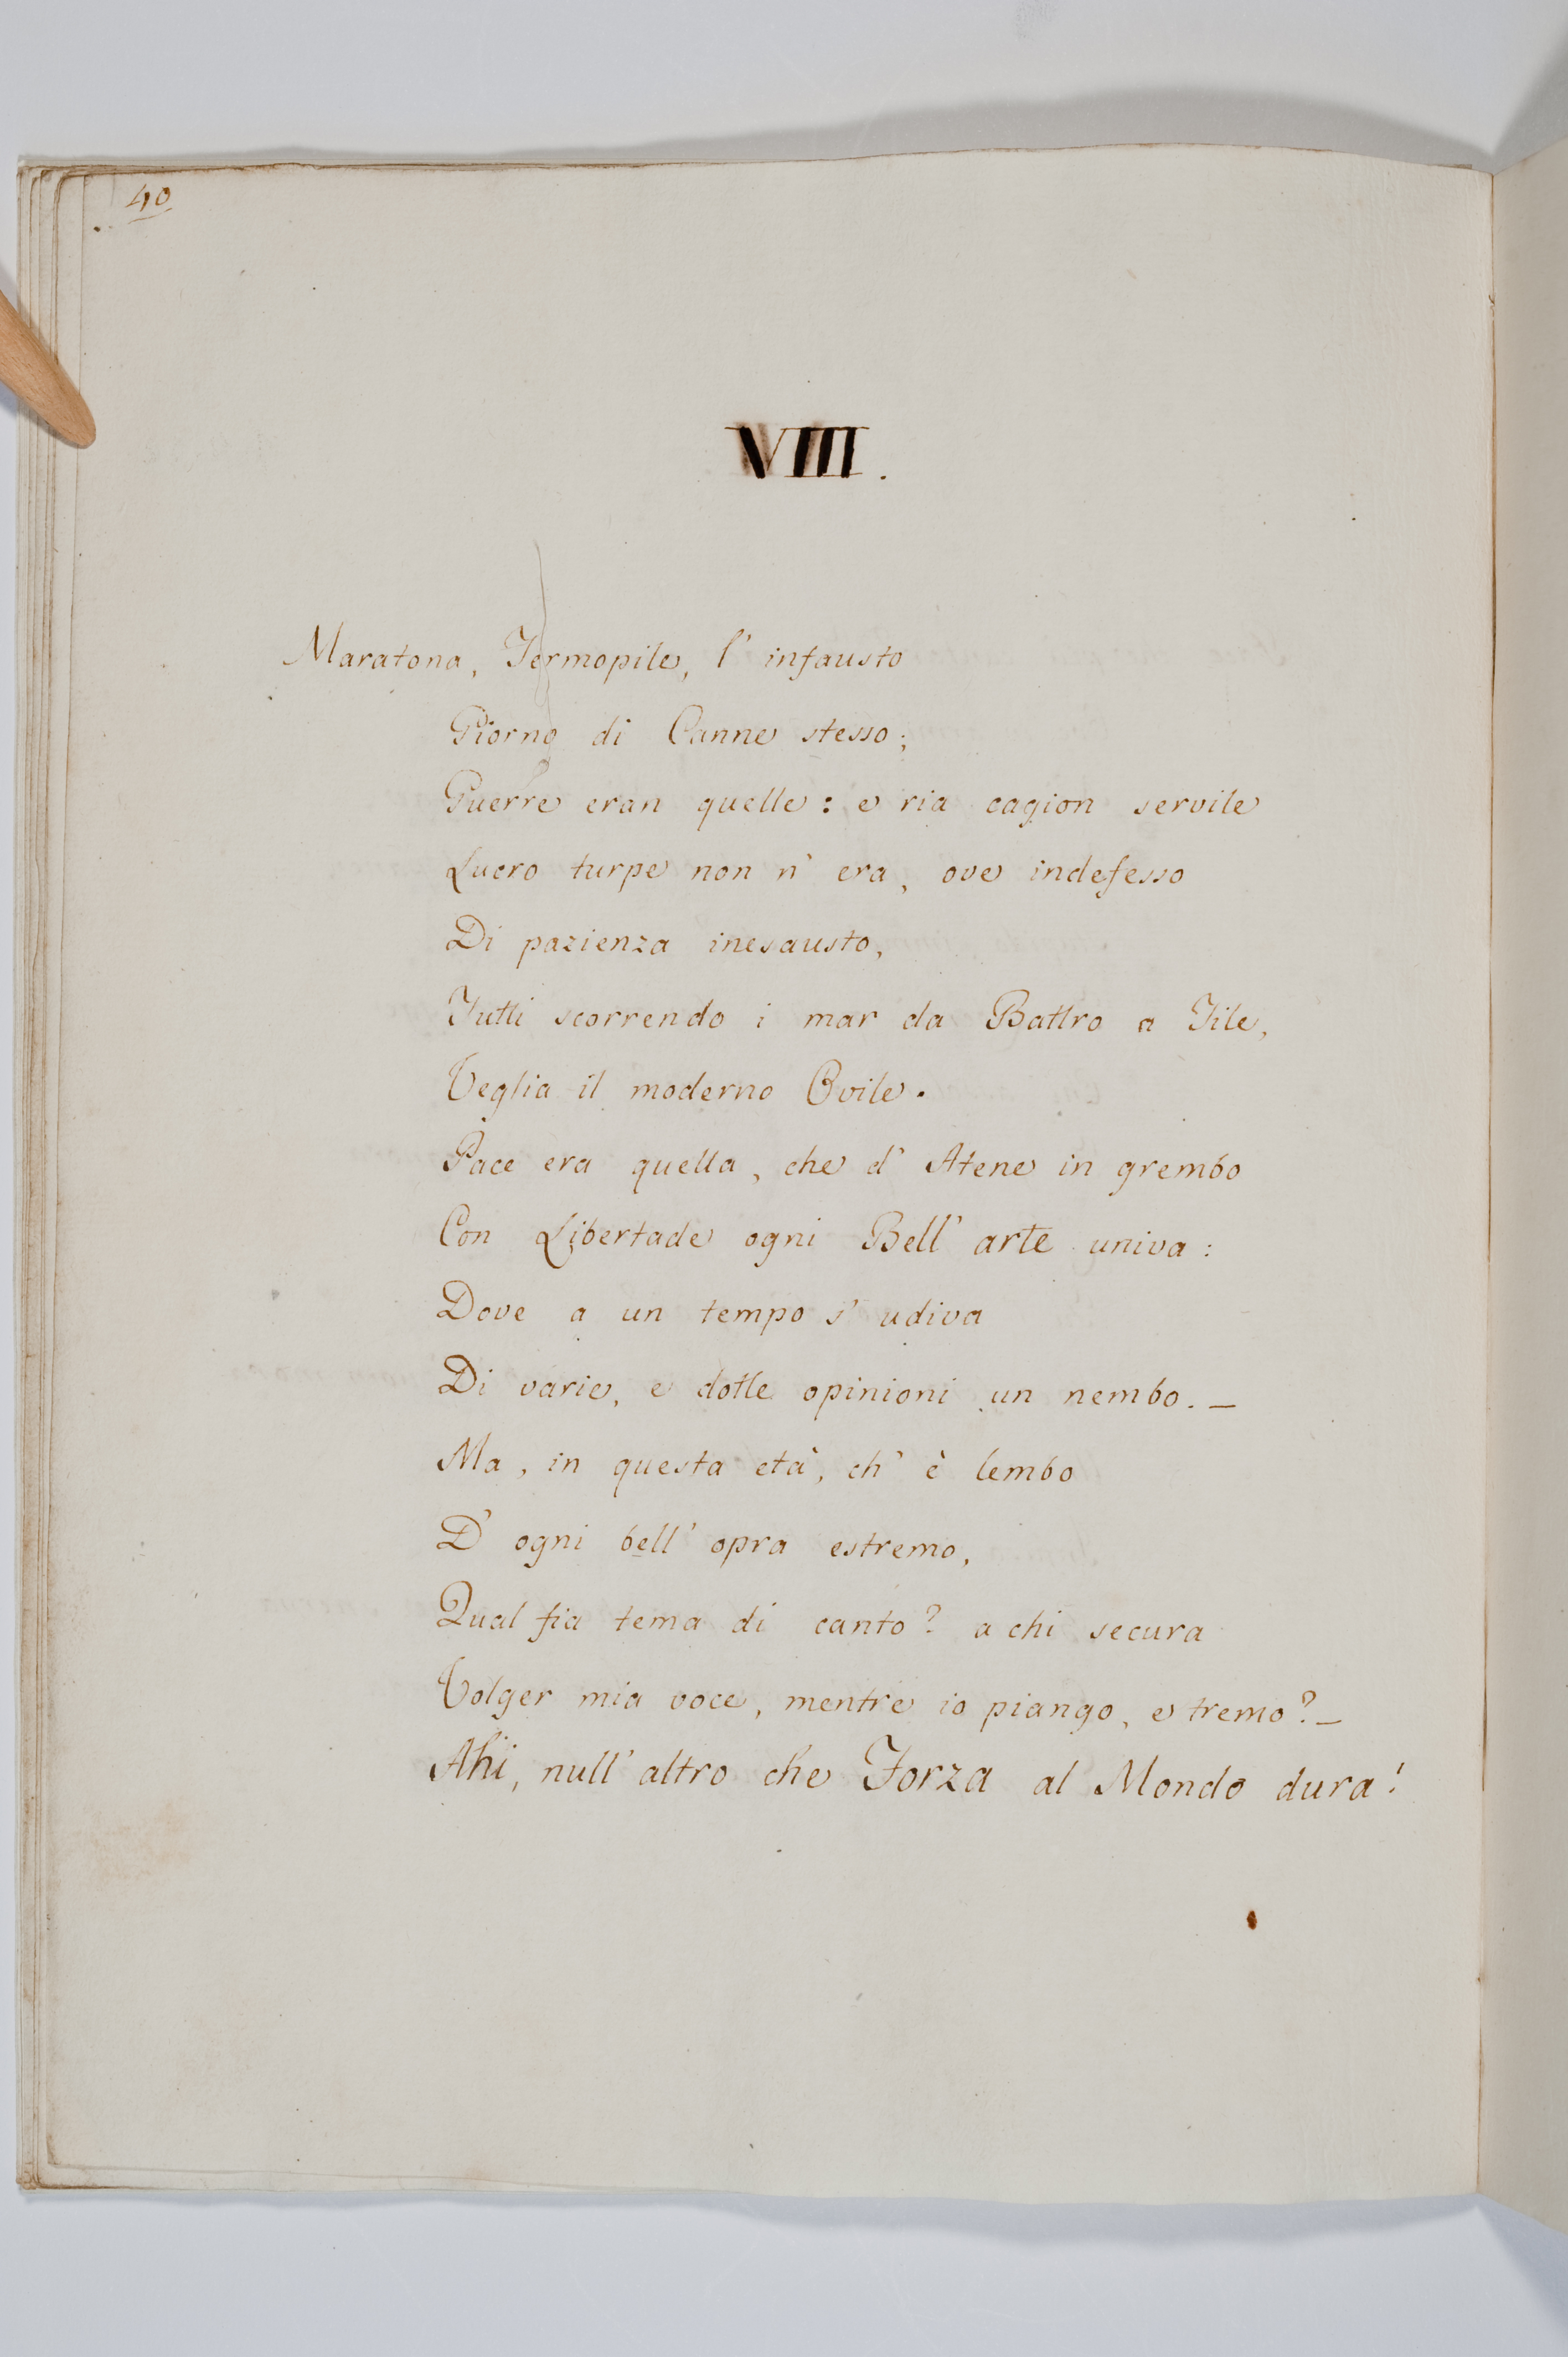 40
VIII.
Maratona, Termopile, l' infausto
Giorno di Canne stesso;
Guerre eran quelle: e ria cagion servile
Lucro turpe non n' era, ove indefesso
Di pazienza inesausto,
Tutti scorrendo i mar da Battro a Tile,
Veglia il moderno Ovile.
Pace era quella, che d' Atene in grembo
Con Libertade ogni Bell' arte univa:
Dove a un tempo s' udiva
Di varie, e dotte opinioni un nembo. _
Ma, in questa età, ch' è lembo
D' ogni bell' opra estremo,
Qual fia tema di canto? a chi secura
Volger mia voce, mentre io piango, e tremo? _
Ahi, null' altro che Forza al Mondo dura!